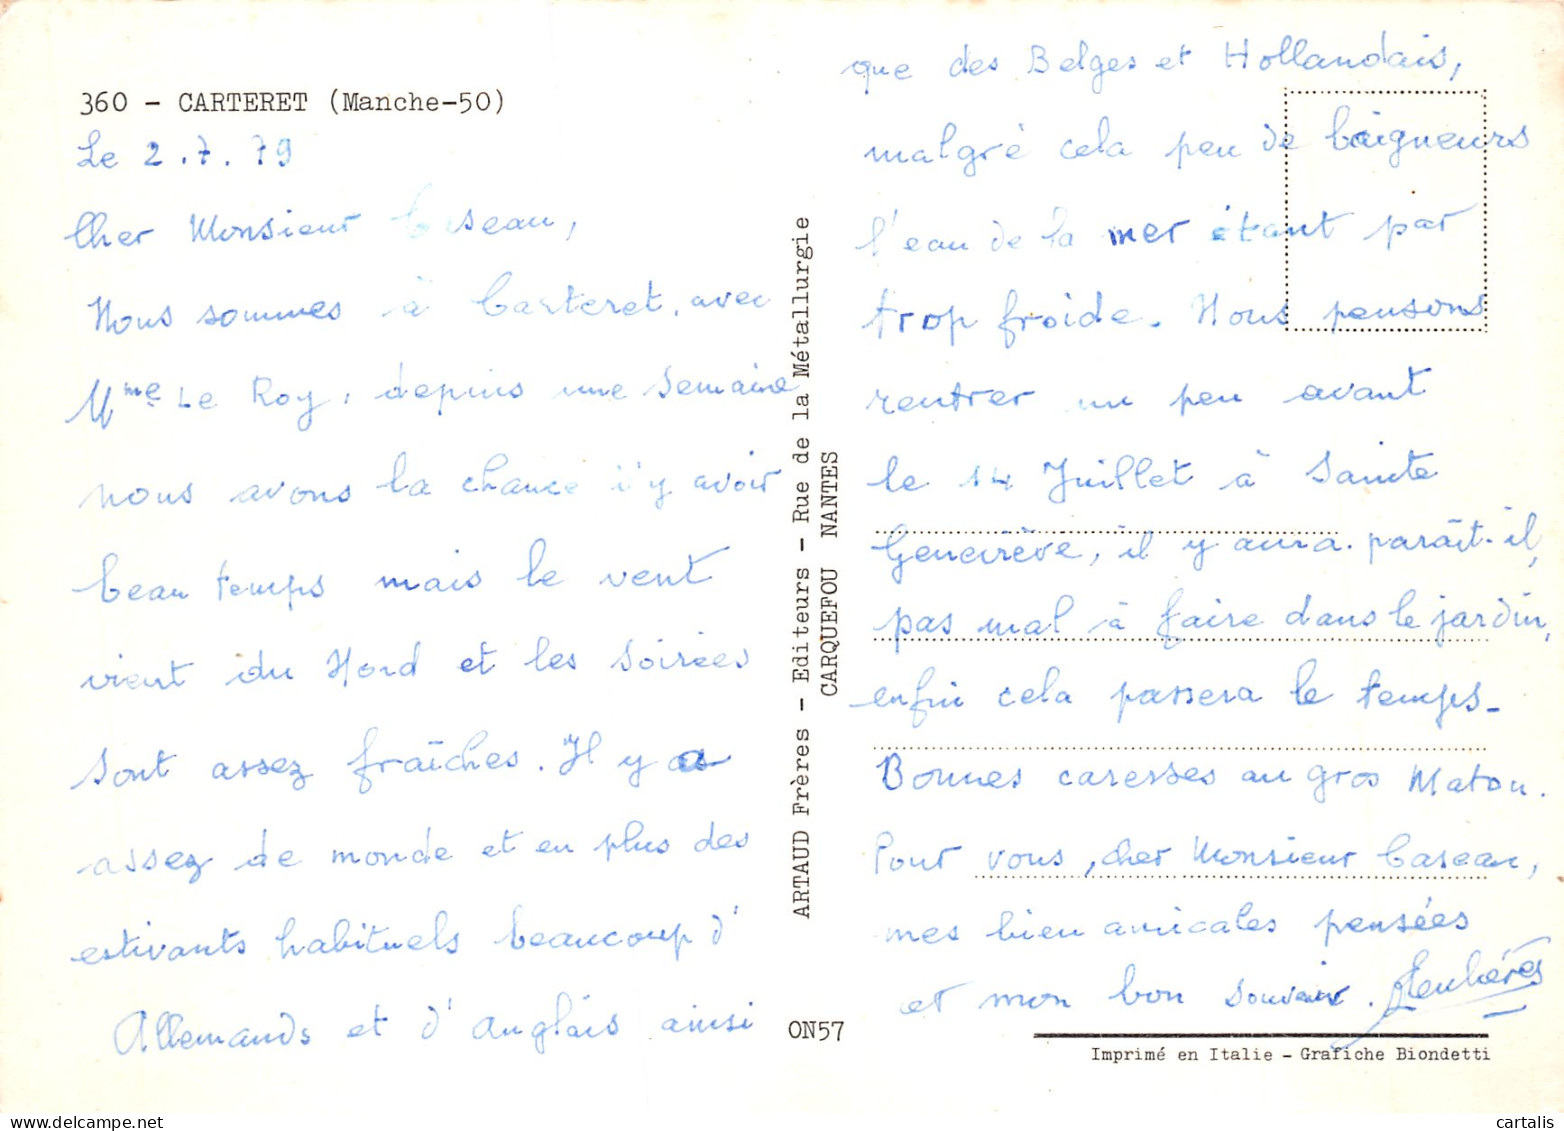 360 - CARTERET (Manche-50)
Le 2.7.79
Cher Monsieur Caseau,
Nous sommes à Carteret, avec
Mme Le Roy, depuis une semaine
nous avons la chance d'y avoir
beau temps mais le vent
vient du Nord et les soirées
sont assez fraîches. Il y a
assez de monde et en plus des
estivants habituels beaucoup d'
Allemands et d'Anglais ainsi
que des Belges et Hollandais,
malgré cela peu de baigneurs
l'eau de la mer étant par
trop froide. Nous pensons
rentrer un peu avant
le 14 Juillet à Sainte
Geneviève, il y aura. paraît-il,
pas mal à faire dans le jardin,
enfin cela passera le temps-
Bonnes caresses au gros Matou.
Pour vous, cher Monsieur Caseau,
mes bien amicales pensées
et mon bon souvenir.
ARTAUD Frères - Editeurs - Rue de la Métallurgie
CARQUEFOU NANTES
ON57
Imprimé en Italie - Grafiche Biondetti
cartalis
www.delcampe.net